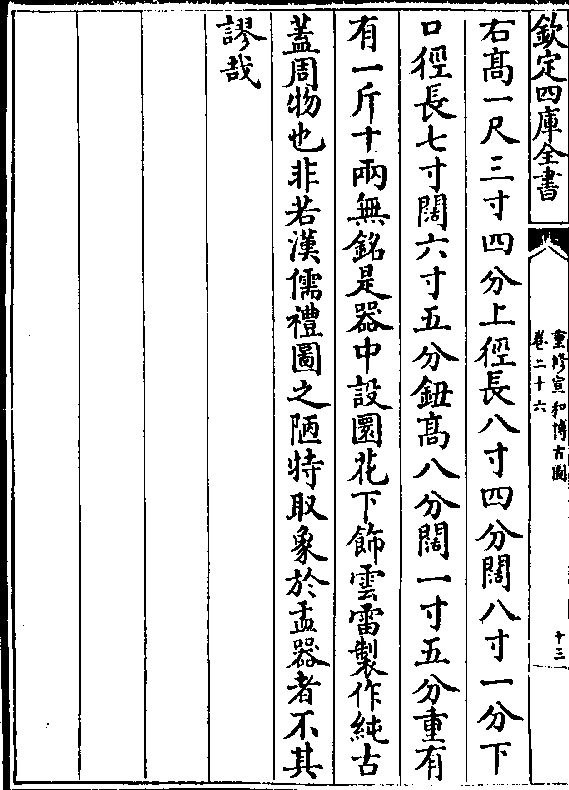 欽定四庫全書
重修宣和博古圖
卷二十六
十三
右髙一尺三寸四分上徑長八寸四分闊八寸一分下
口徑長七寸闊六寸五分鈕髙八分闊一寸五分重有
有一斤十兩無銘是器中設圜花下飾雲雷製作純古
蓋周物也非若漢儒禮圖之陋特取象於盂器者不其
謬哉